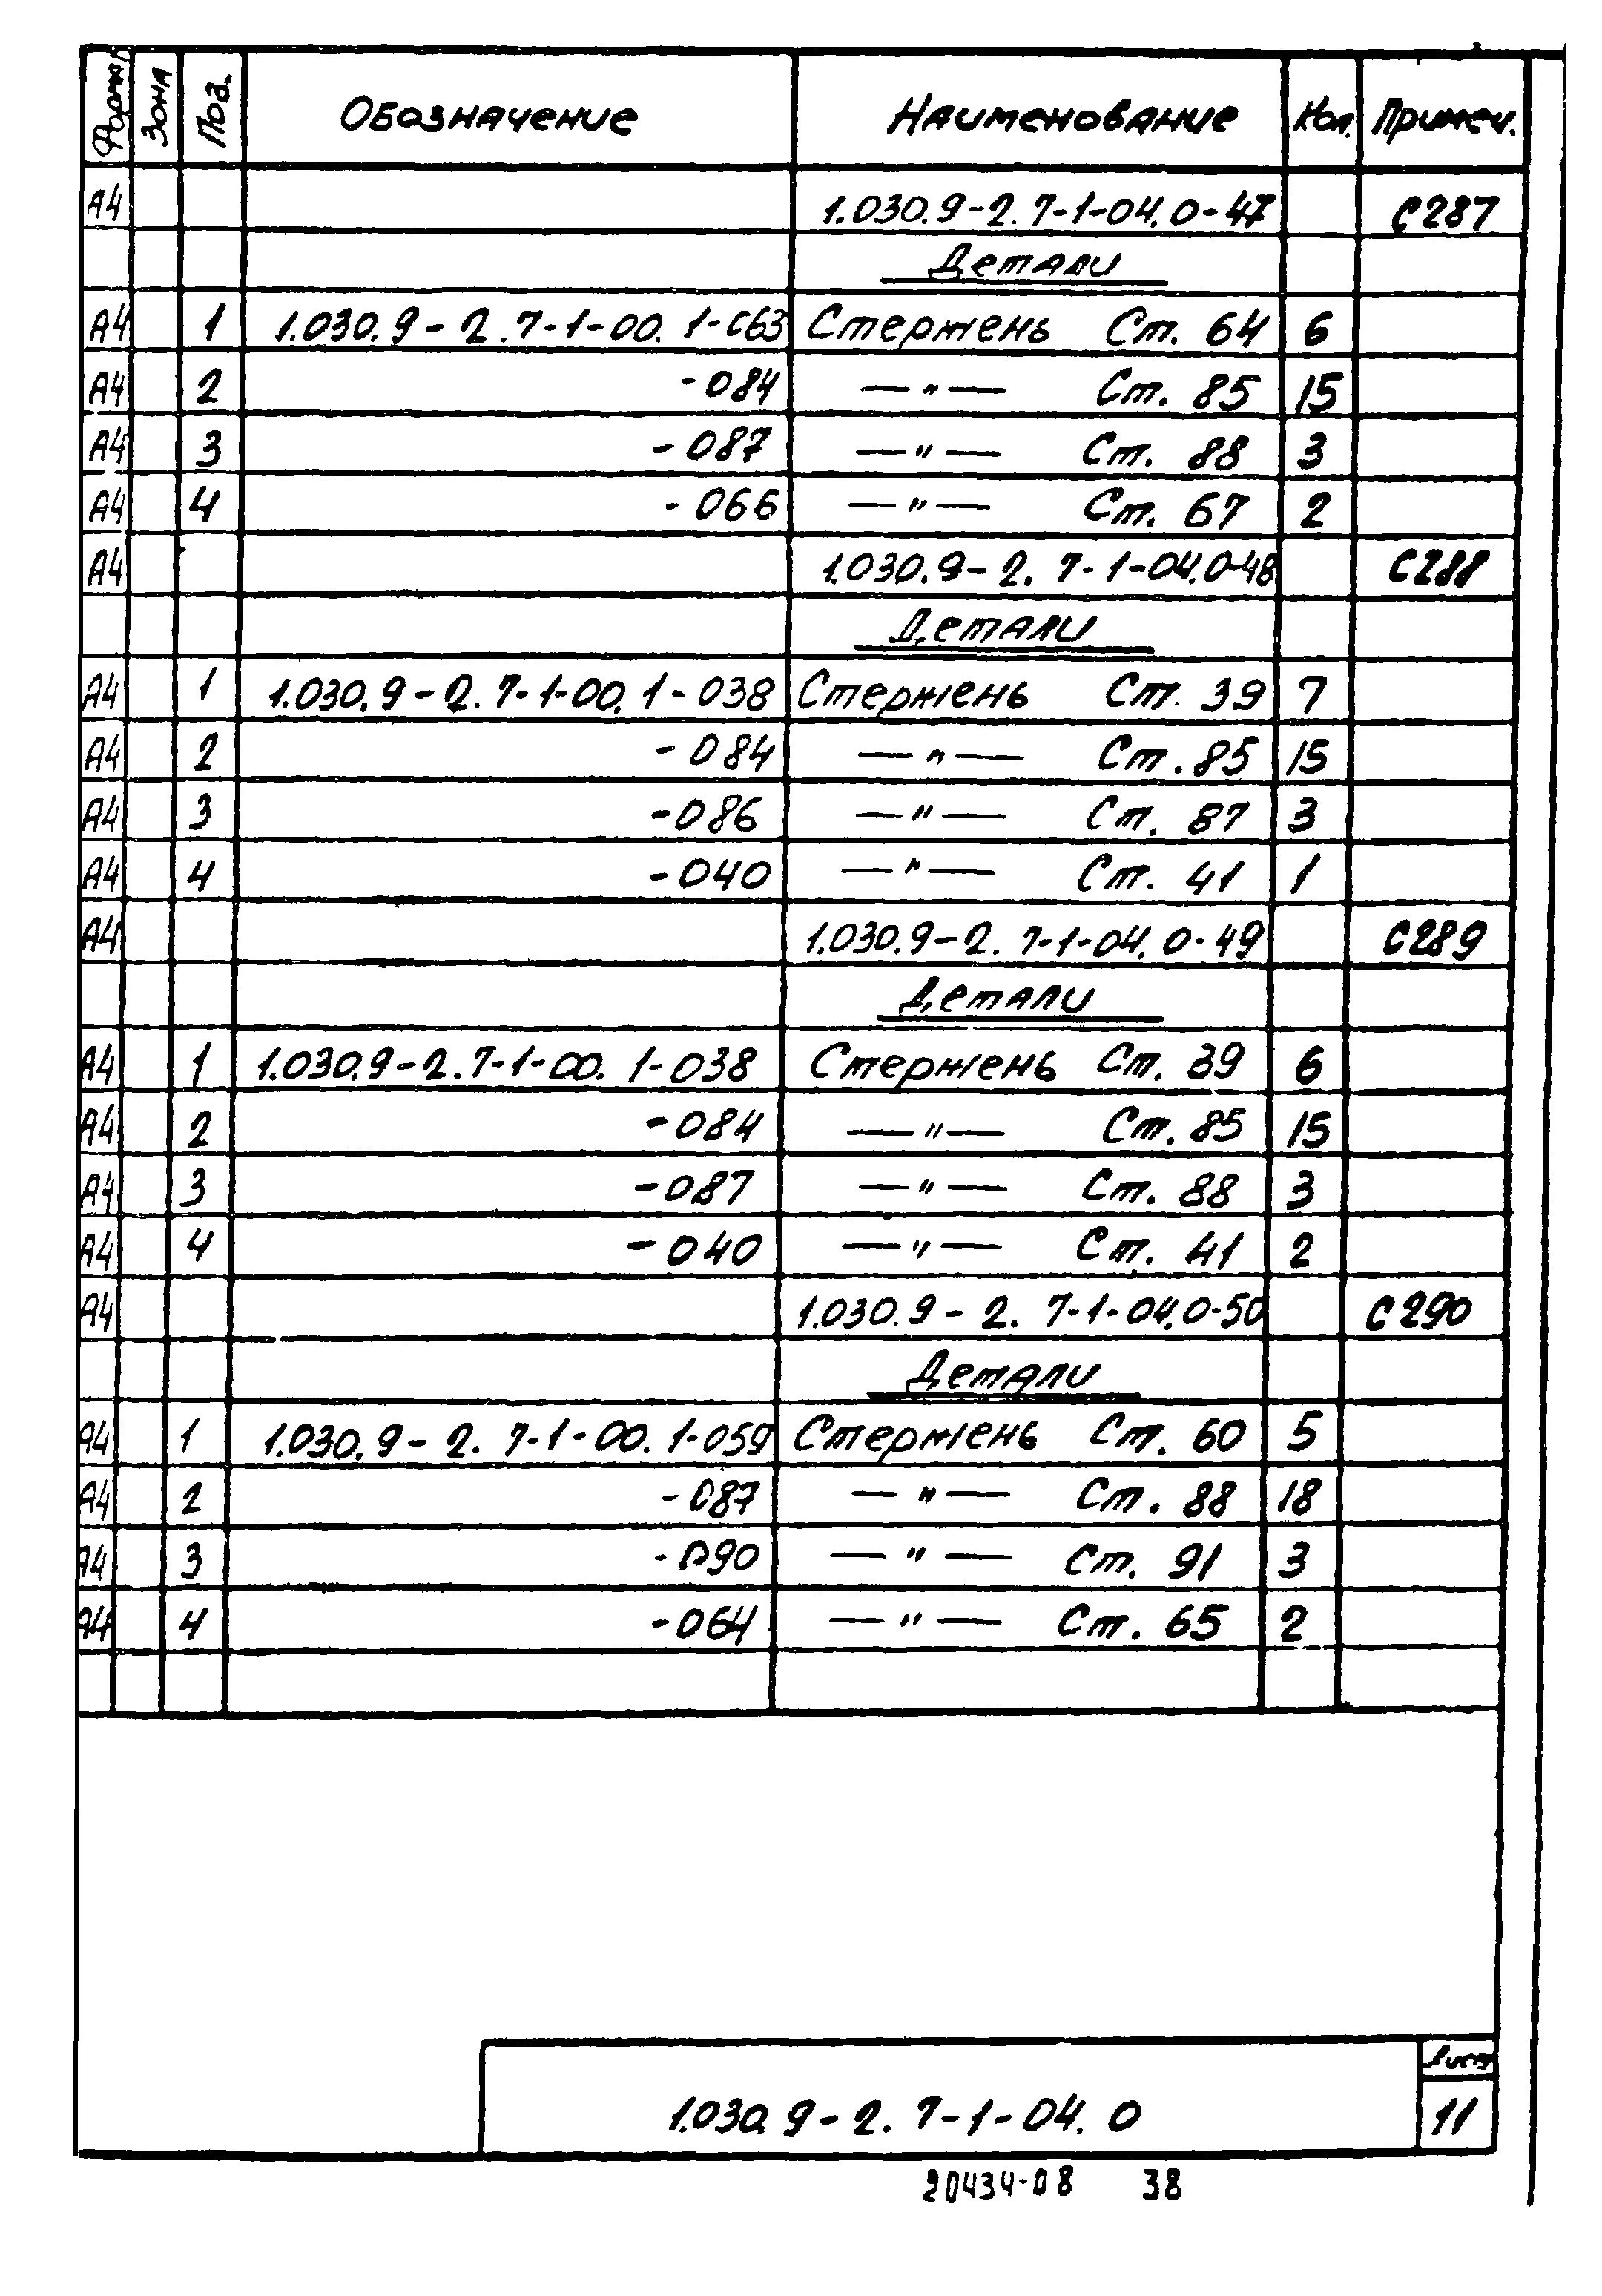 Формат Зона Поз. Обозначение Наименование Кол. Примеч.
А4 1.030.9-2.7-1-04.0-47 С287
Детали
А4 1 1.030.9-2.7-1-00.1-063 Стержень Ст. 64 6
А4 2 -084 —"— Ст. 85 15
А4 3 -087 —"— Ст. 88 3
А4 4 -066 —"— Ст. 67 2
А4 1.030.9-2.7-1-04.0-48 С288
Детали
А4 1 1.030.9-2.7-1-00.1-038 Стержень Ст. 39 7
А4 2 -084 —"— Ст. 85 15
А4 3 -086 —"— Ст. 87 3
А4 4 -040 —"— Ст. 41 1
А4 1.030.9-2.7-1-04.0-49 С289
Детали
А4 1 1.030.9-2.7-1-00.1-038 Стержень Ст. 39 6
А4 2 -084 —"— Ст. 85 15
А4 3 -087 —"— Ст. 88 3
А4 4 -040 —"— Ст. 41 2
А4 1.030.9-2.7-1-04.0-50 С290
Детали
А4 1 1.030.9-2.7-1-00.1-059 Стержень Ст. 60 5
А4 2 -087 —"— Ст. 88 18
А4 3 -090 —"— Ст. 91 3
А4 4 -064 —"— Ст. 65 2
Лист
1.030.9-2.7-1-04.0 11
20434-08 38